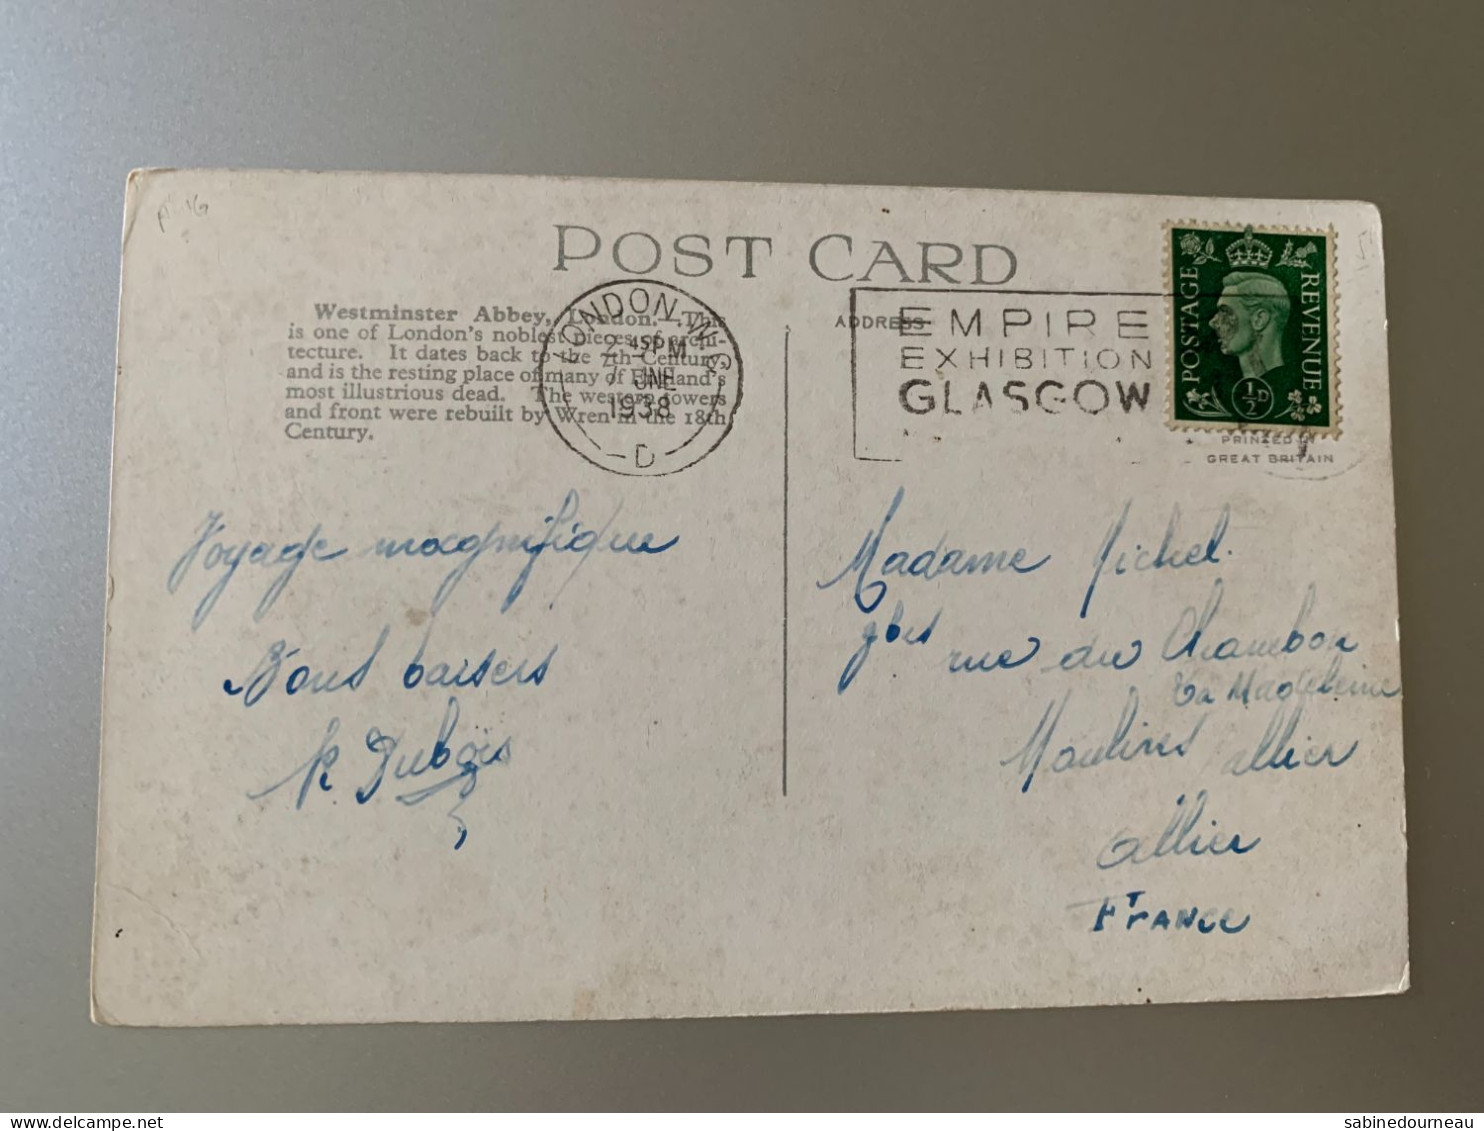 POST CARD
Westminster Abbey, London. This
is one of London's noblest pieces of archi-
tecture. It dates back to the 7th Century,
and is the resting place of many of England's
most illustrious dead. The western towers
and front were rebuilt by Wren in the 18th
Century.
LONDON. W.
2 45 PM
JNE
1938
D
ADDRESS
EMPIRE
EXHIBITION
GLASGOW
POSTAGE
REVENUE
½D
PRINTED IN
GREAT BRITAIN
Voyage magnifique
Bons baisers
R Dubois
Madame Michel
7bis rue du Chambon
La Madeleine
Moulins allier
allier
FRANCE
sabinedourneau